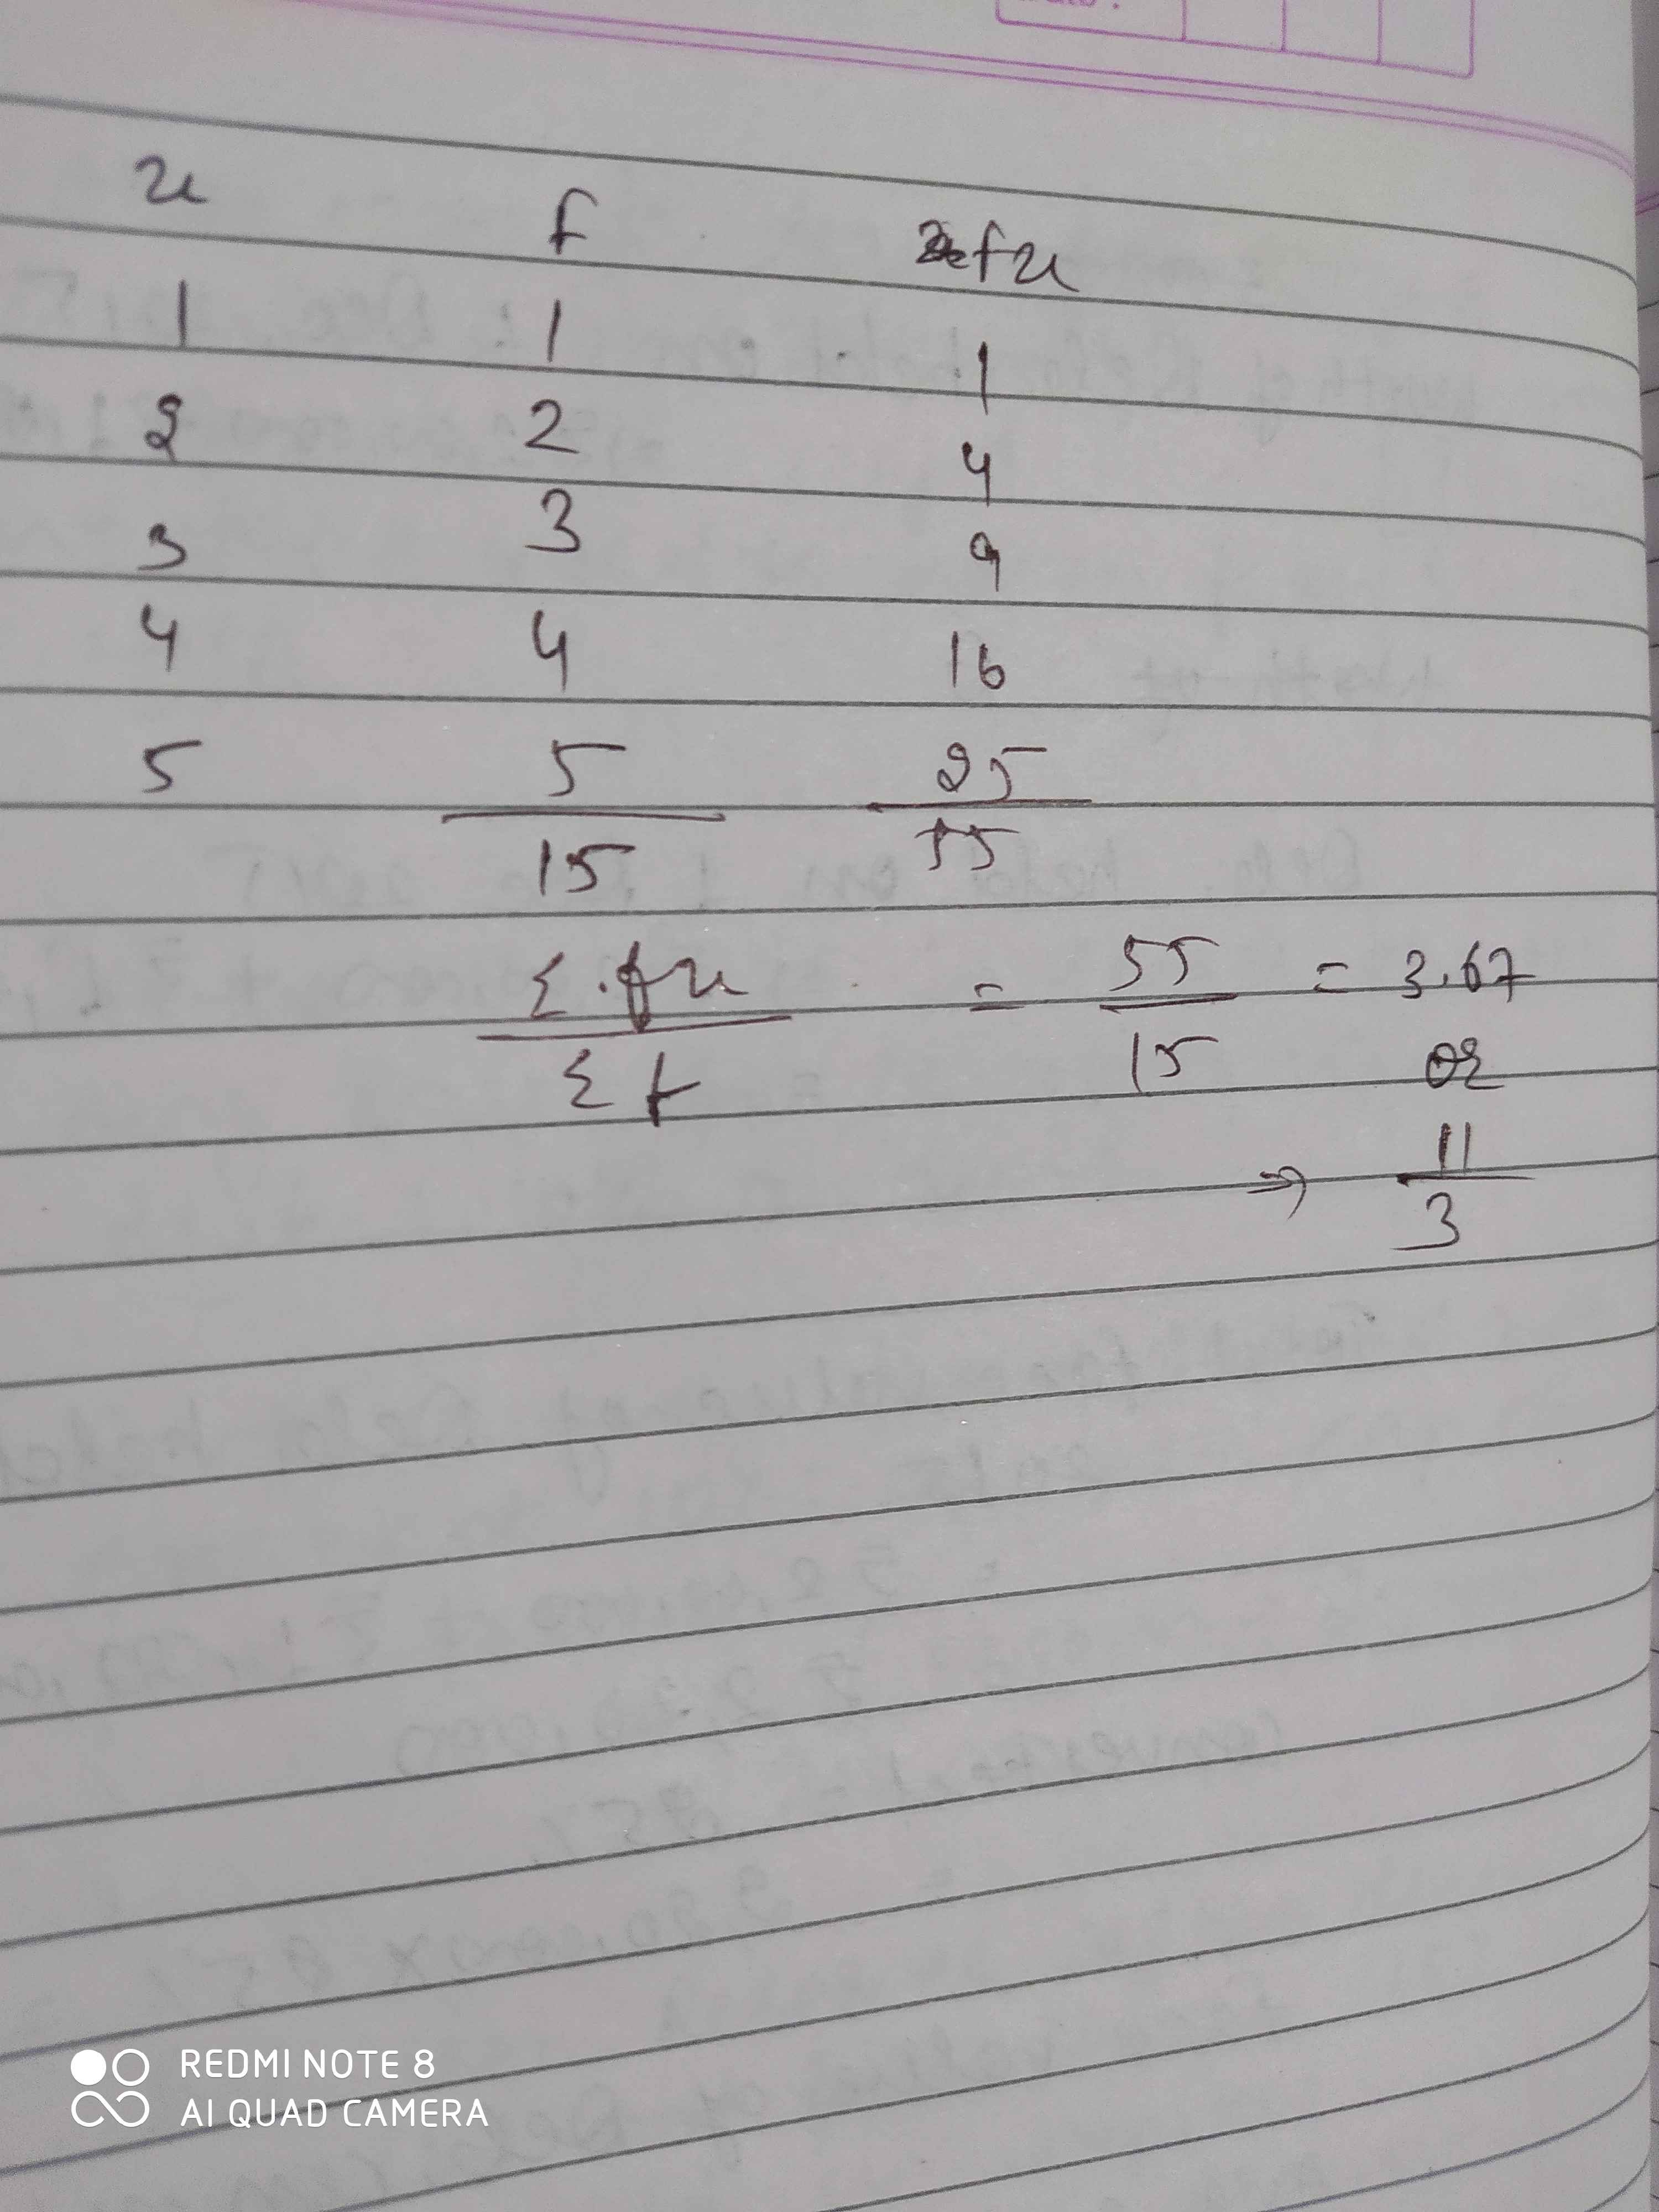 x f fx
1 1 1
2 2 4
3 3 9
4 4 16
5 5 25
15 55
Σ.fx / Σf = 55/15 = 3.67
or
⇒ 11/3
REDMI NOTE 8
AI QUAD CAMERA